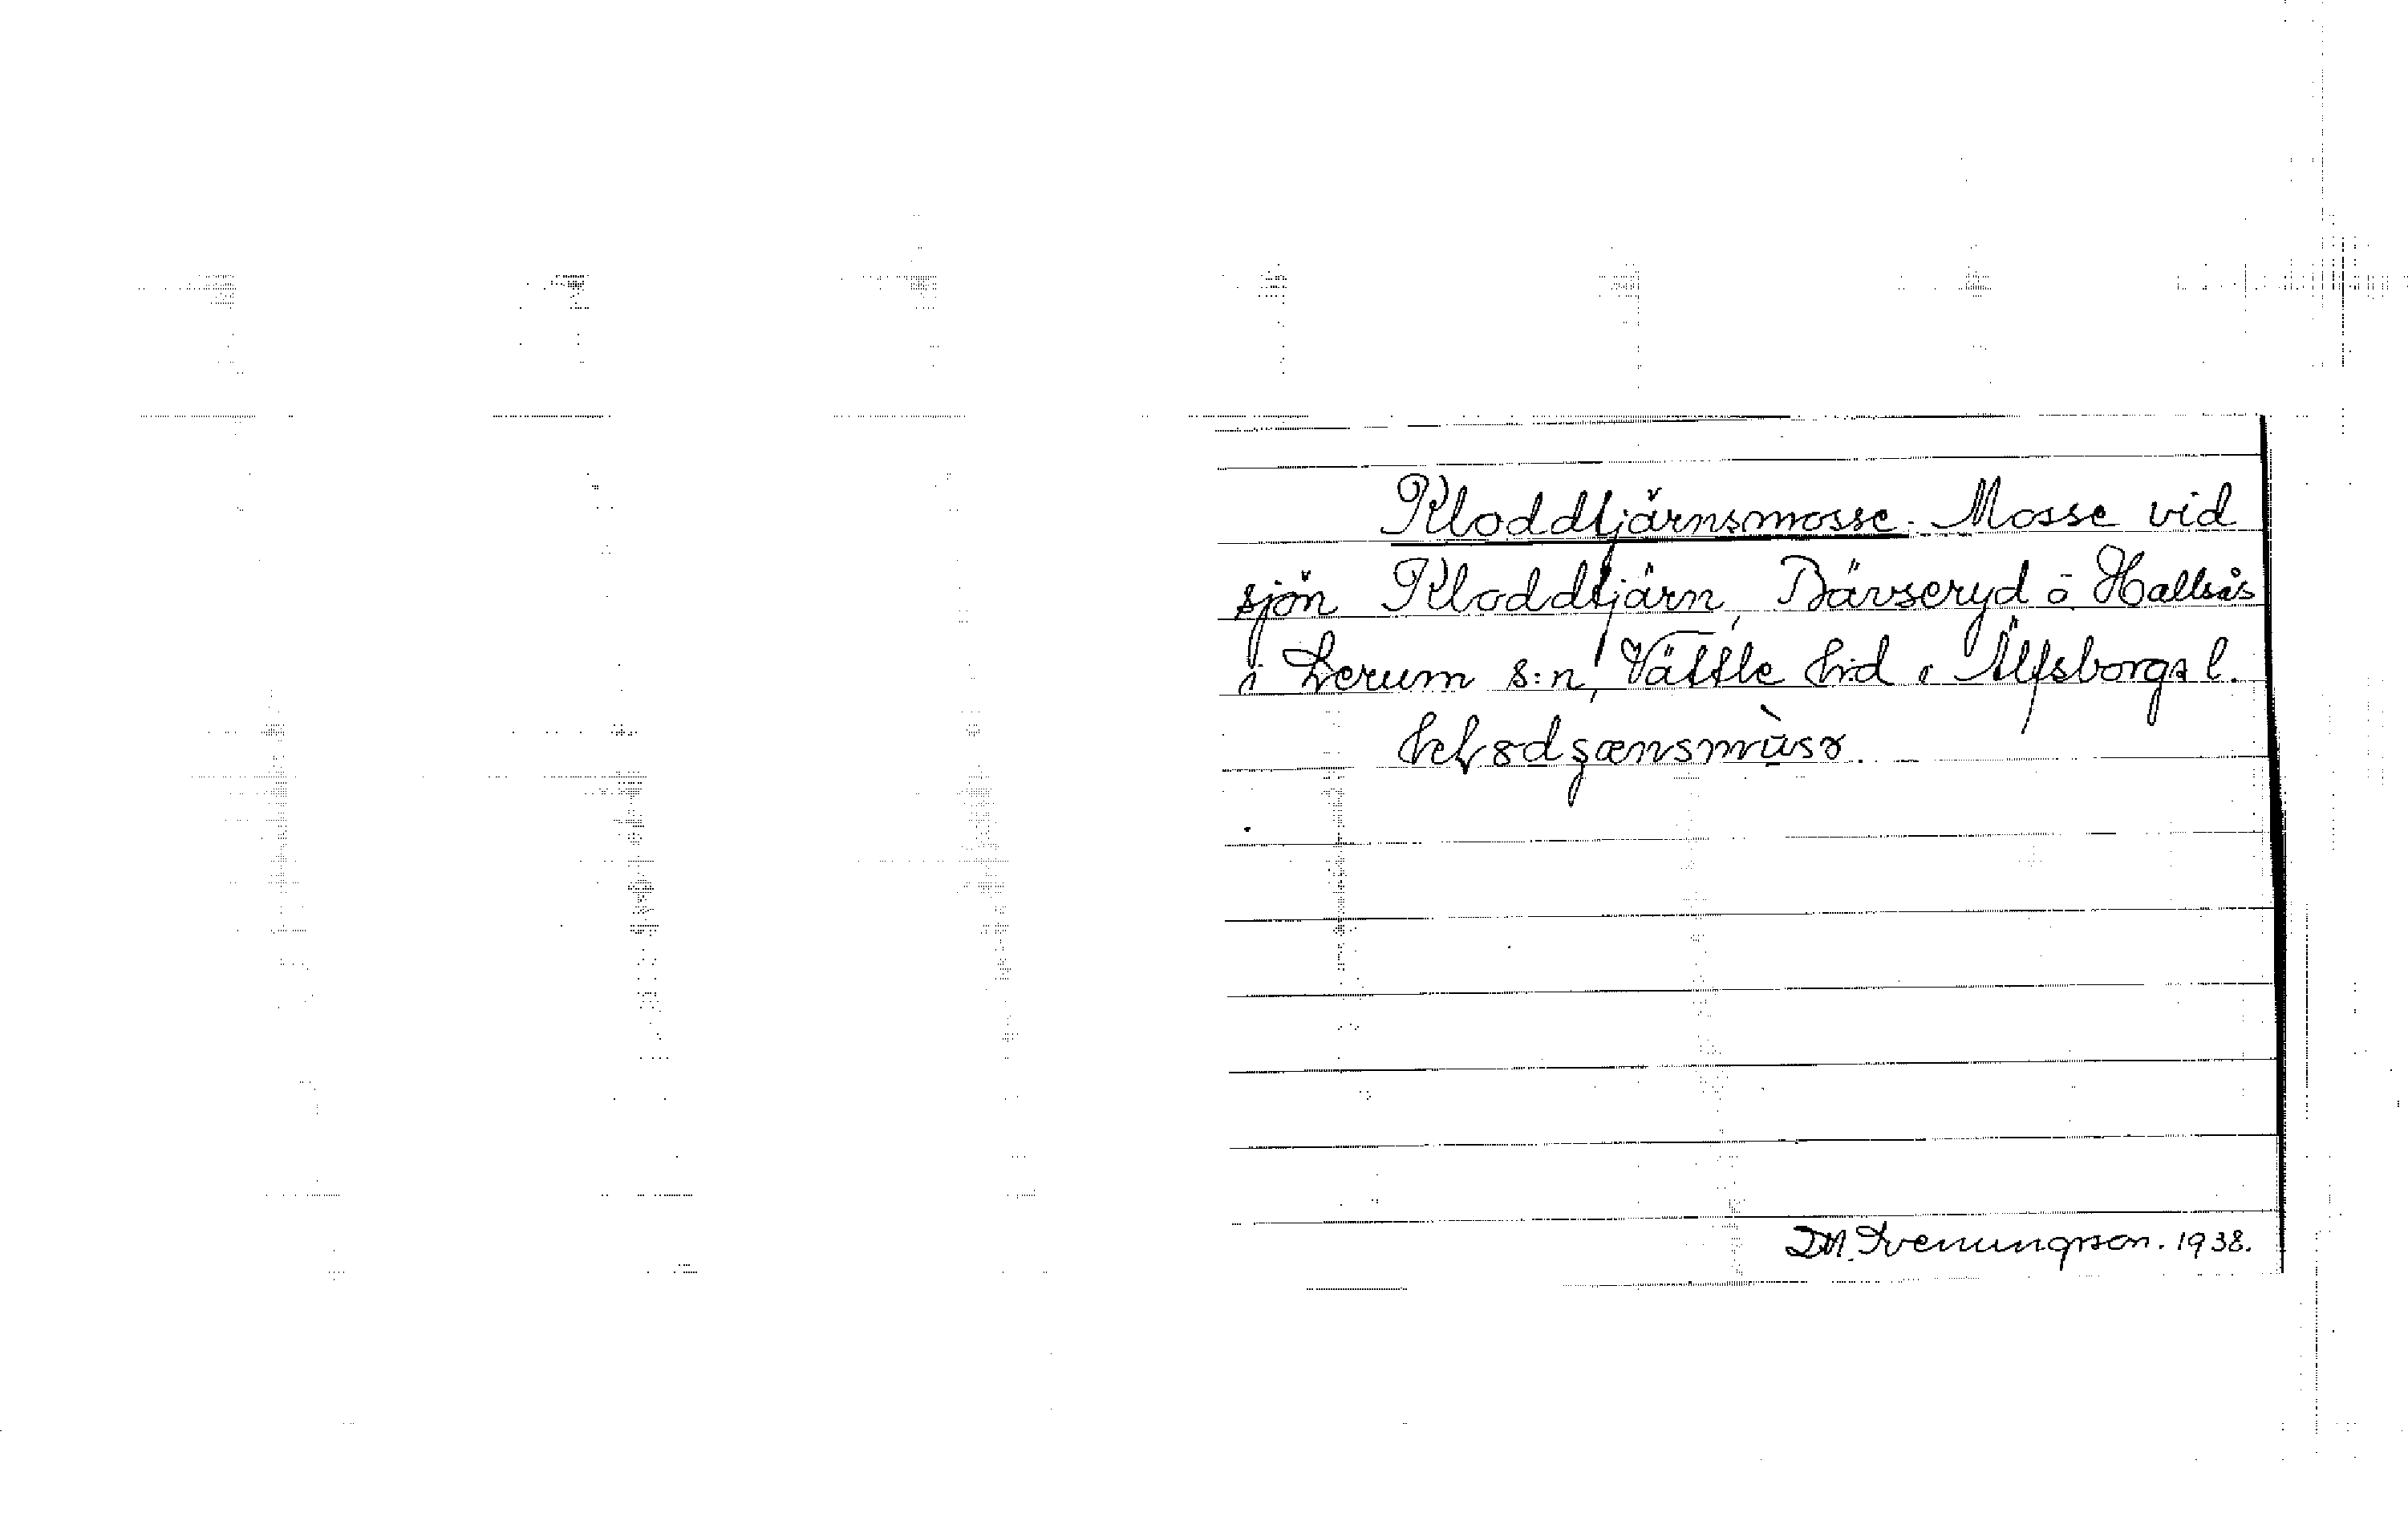 Kloddtjärnsmosse. Mosse vid
sjön Kloddtjärn, Bävseryd o. Hallsås
i Lerum s:n, Vättle hd i Älfsborgs l.
D.M. Svenungsson. 1938.